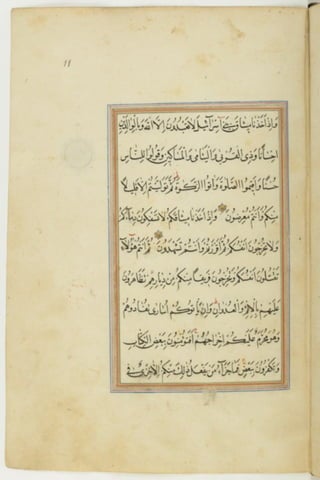 11
واذ اخذنا ميثاق بنى اسرائيل لا تعبدون الا الله وبالوالدين
احسانا وذى القربى واليتامى والمساكين وقولوا للناس
حسنا واقيموا الصلوة واتوا الزكوة ثم توليتم الا قليلا
منكم وانتم معرضون واذ اخذنا ميثاقكم لا تسفكون دماءكم
ولا تخرجون انفسكم ثم اقررتم وانتم تشهدون ثم انتم هؤلاء
تقتلون انفسكم وتخرجون فريقا منكم من ديارهم تظاهرون
عليهم بالاثم والعدوان وان ياتوكم اسارى تفادوهم
وهو محرم عليكم اخراجهم افتؤمنون ببعض الكتاب
وتكفرون ببعض فما جزاء من يفعل ذلك منكم الا خزى فى